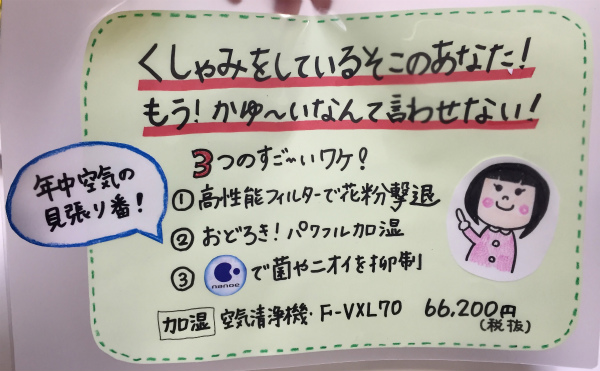 くしゃみをしているそこのあなた!
もう!かゆ〜いなんて言わせない!
年中空気の
見張り番!
3つのすご〜いワケ?
①高性能フィルターで花粉撃退
②おどろき!パワフル加湿
③nanoeで菌やニオイを抑制
加湿 空気清浄機・F-VXL70 66,200円
(税抜)